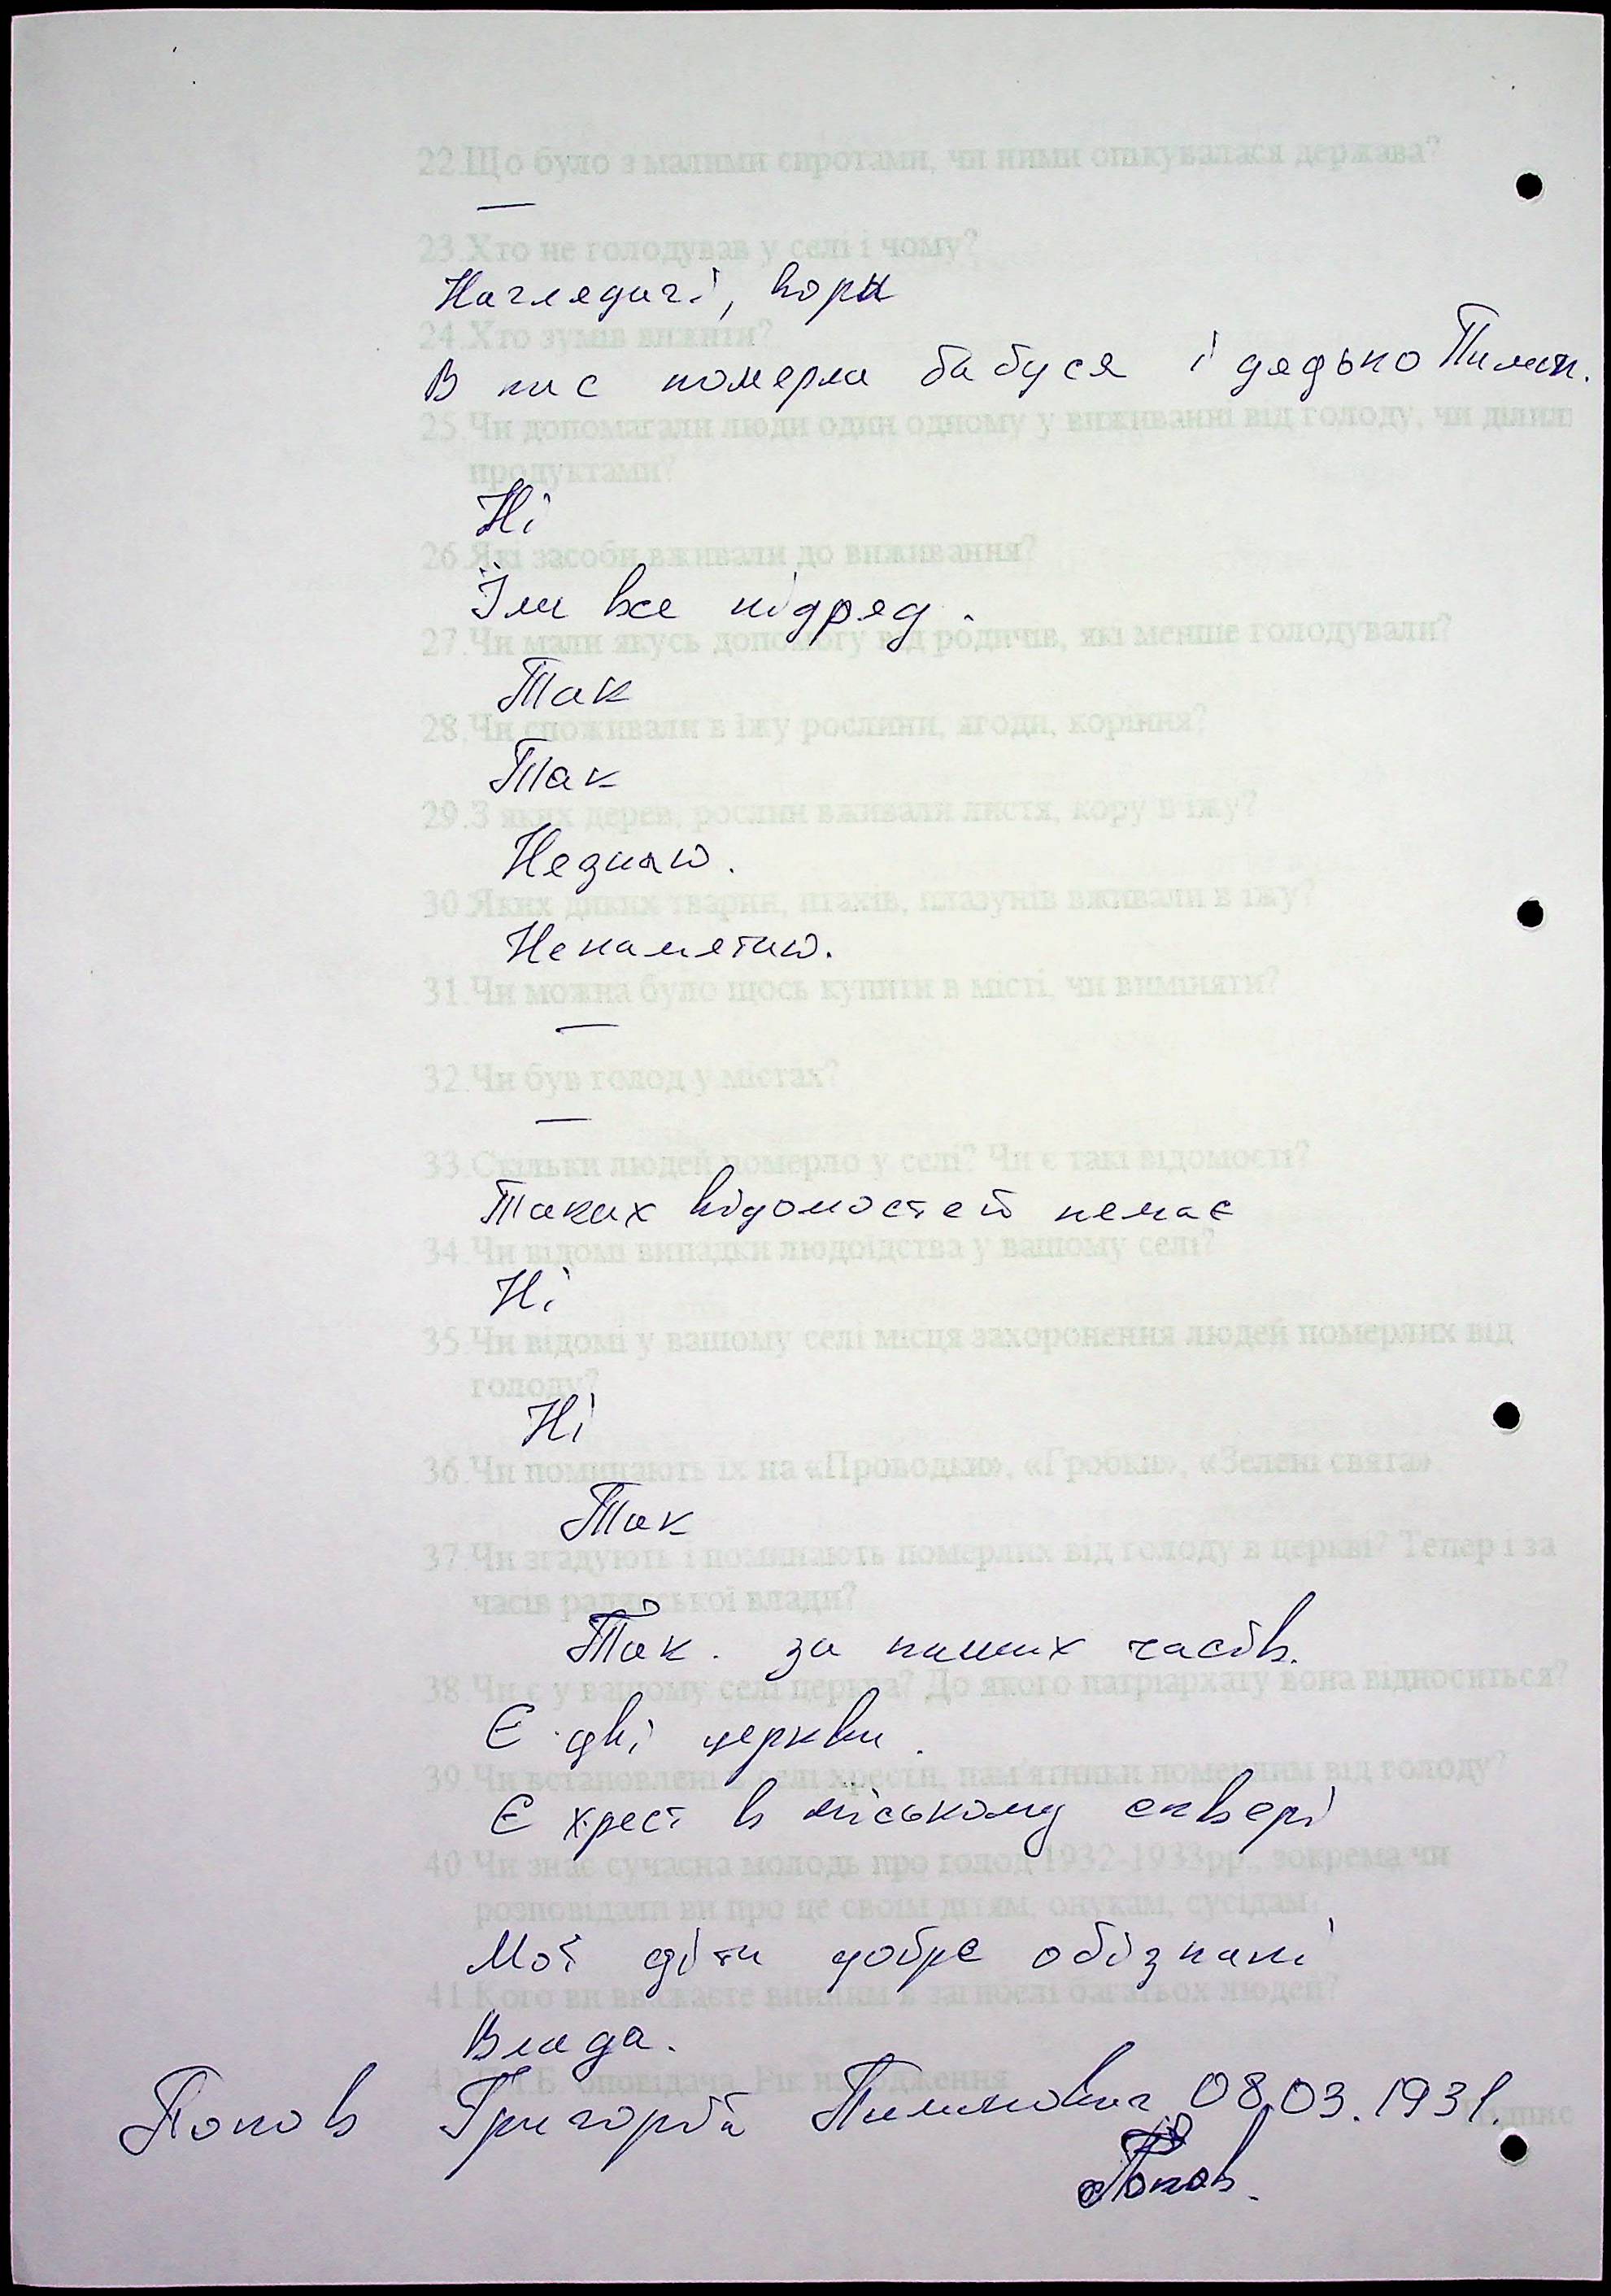 22.Що було з малими сиротами, чи ними опікувалася держава?
—
23.Хто не голодував у селі і чому?
Наглядачі, вори
24.Хто зумів вижити?
В нас померла бабуся і дядько Пилип.
25.Чи допомагали люди один одному у виживанні від голоду, чи ділили
продуктами?
Ні
26.Які засоби вживали до виживання?
Їли все підряд.
27.Чи мали якусь допомогу від родичів, які менше голодували?
Так
28.Чи споживали в їжу рослини, ягоди, коріння?
Так
29.З яких дерев, рослин вживали листя, кору в їжу?
Незнаю.
30.Яких диких тварин, птахів, плазунів вживали в їжу?
Непамятаю.
31.Чи можна було щось купити в місті, чи виміняти?
—
32.Чи був голод у містах?
—
33.Скільки людей померло у селі? Чи є такі відомості?
Таких відомостей немає
34.Чи відомі випадки людоїдства у вашому селі?
Ні
35.Чи відомі у вашому селі місця захоронення людей померлих від
голоду?
Ні
36.Чи поминають їх на «Проводи», «Гробки», «Зелені свята»
Так
37.Чи згадують і поминають померлих від голоду в церкві? Тепер і за
часів радянської влади?
Так. за наших часів.
38.Чи є у вашому селі церква? До якого патріархату вона відноситься?
Є дві церкви.
39.Чи встановлені в селі хрести, пам'ятники померлим від голоду?
Є хрест в міському сквері
40.Чи знає сучасна молодь про голод 1932-1933рр., зокрема чи
розповідали ви про це своїм дітям, онукам, сусідам.
Мої діти добре обізнані
41.Кого ви вважаєте винним в загибелі багатьох людей?
Влада.
42. оповідача. Рік народження
Попов Григорій Пилипович 08.03.1931.
підпис
Попов.